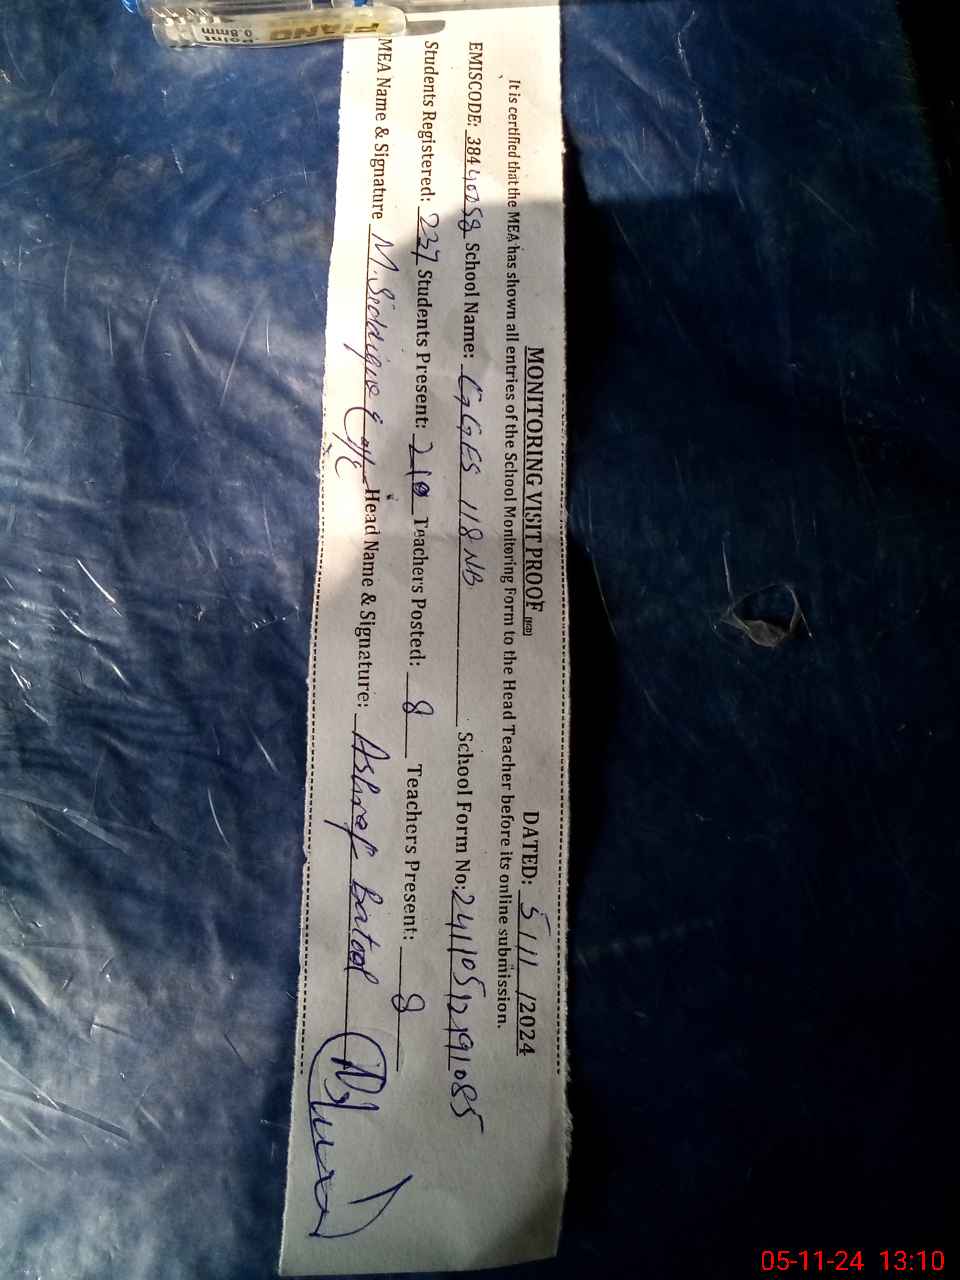 MONITORING VISIT PROOF DATED: 5/11/2024
It is certified that the MEA has shown all entries of the School Monitoring Form to the Head Teacher before its online submission.
EMISCODE: 38440058 School Name: GGES 118 NB School Form No: 24110512191085
Students Registered: 237 Students Present: 210 Teachers Posted: 8 Teachers Present: 8
MEA Name & Signature M. Siddique Head Name & Signature: Ashraf Batool
PIANO
Point 0.8mm
05-11-24 13:10